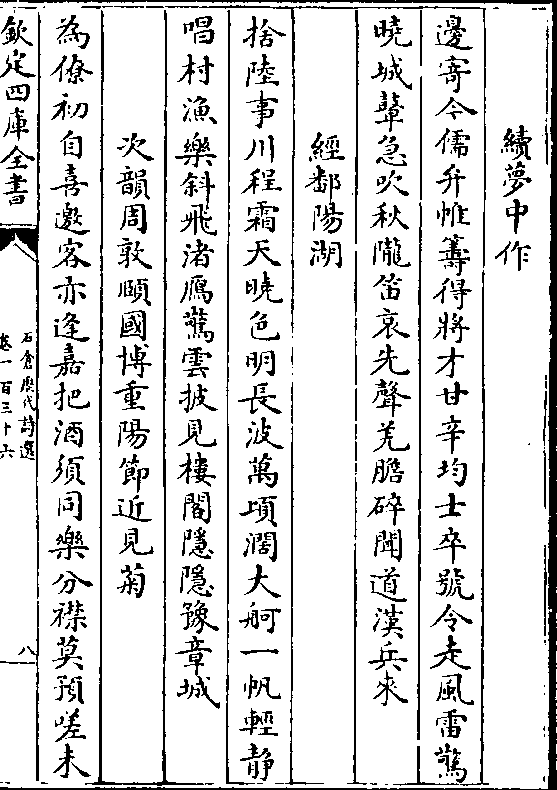 續夢中作
邊寄今儒升帷籌得將才甘辛均士卒號令走風雷驚
曉城鼙急吹秋隴笛哀先聲羌膽碎聞道漢兵來
經鄱陽湖
捨陸事川程霜天曉色明長波萬頃濶大舸一帆輕静
唱村漁樂斜飛渚鴈驚雲披見樓閣隱隱豫章城
次韻周敦頤國博重陽節近見菊
為僚初自喜邀客亦逢嘉把酒須同樂分襟莫預嗟未
欽定四庫全書
石倉歴代詩選
卷一百三十六
八